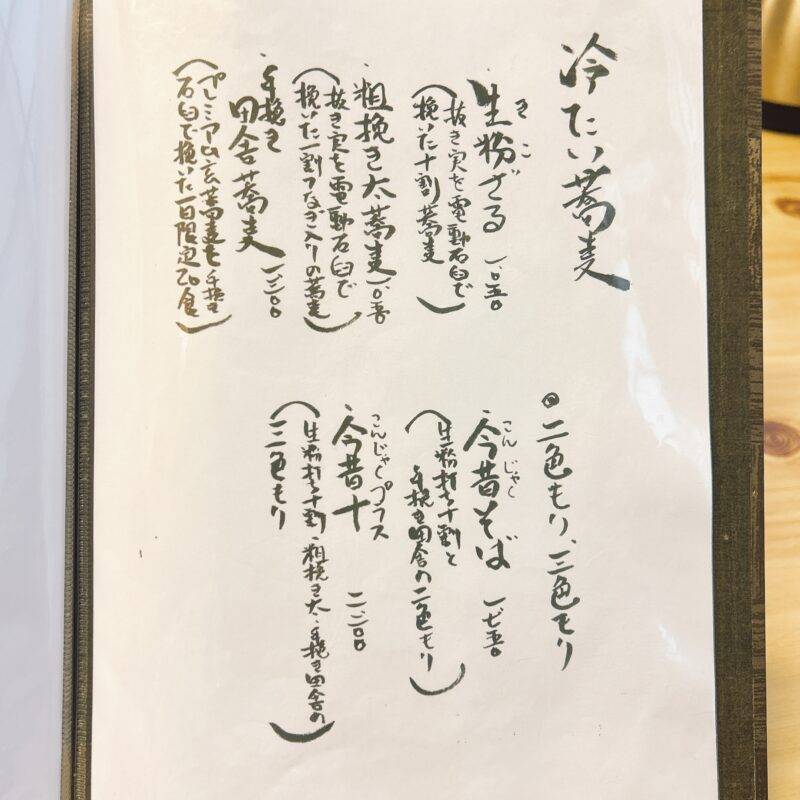 冷たい蕎麦
・生粉ざる 一、〇五〇
きこ
(抜き実を電動石臼で
挽いた十割蕎麦)
・粗挽き太蕎麦 一、〇五〇
(抜き実を電動石臼で
挽いた一割つなぎ入りの蕎麦)
・手挽き
田舎蕎麦 一、三〇〇
(プレミアム玄蕎麦を手挽き
石臼で挽いた一日限定20食)
◎二色もり、三色もり
こんじゃく
・今昔そば 一、七五〇
(生粉打ち十割と
手挽き田舎の二色もり)
こんじゃくプラス
・今昔十 二、二〇〇
(生粉打ち十割・粗挽き太・手挽き田舎の
三色もり)